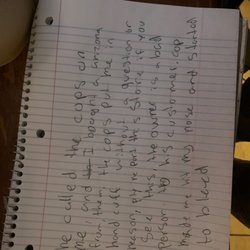 He called the cops on
me and I bought a arizona
from them, the cops put me in
hand cuff without a question or
reason, ply report this store if you
see this, the owner is a bad
person to his customer, cop
made me hit my nose and started
to bleed